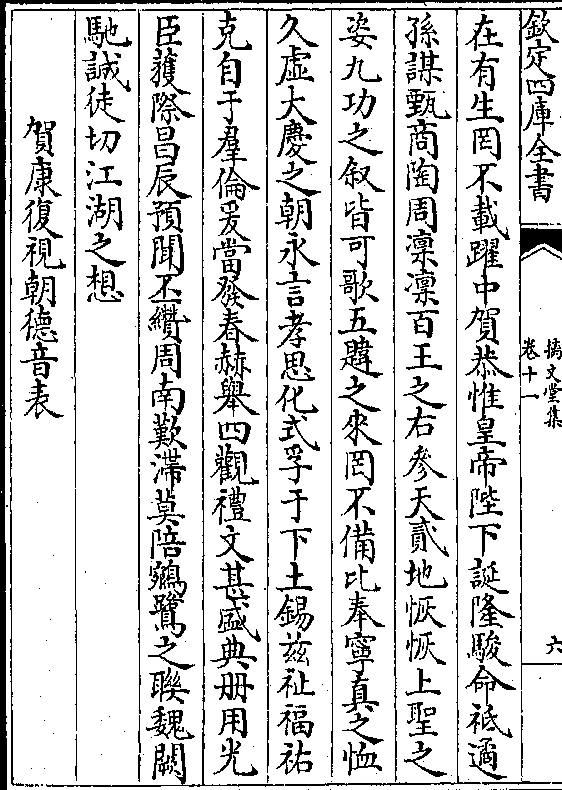 欽定四庫全書
摛文堂集
卷十一
六
在有生罔不載躍中賀恭惟皇帝陛下誕隆駿命祗遹
孫謀甄商陶周凛凛百王之右參天貳地恢恢上聖之
姿九功之叙皆可歌五韙之來罔不備比奉寜真之恤
久虛大慶之朝永言孝思化式孚于下土錫兹祉福祐
克自于羣倫爰當發春赫舉四觀禮文甚盛典册用光
臣獲際昌辰預聞丕纘周南歎滯莫陪鵷鷺之聯魏闕
馳誠徒切江湖之想
賀康復視朝德音表